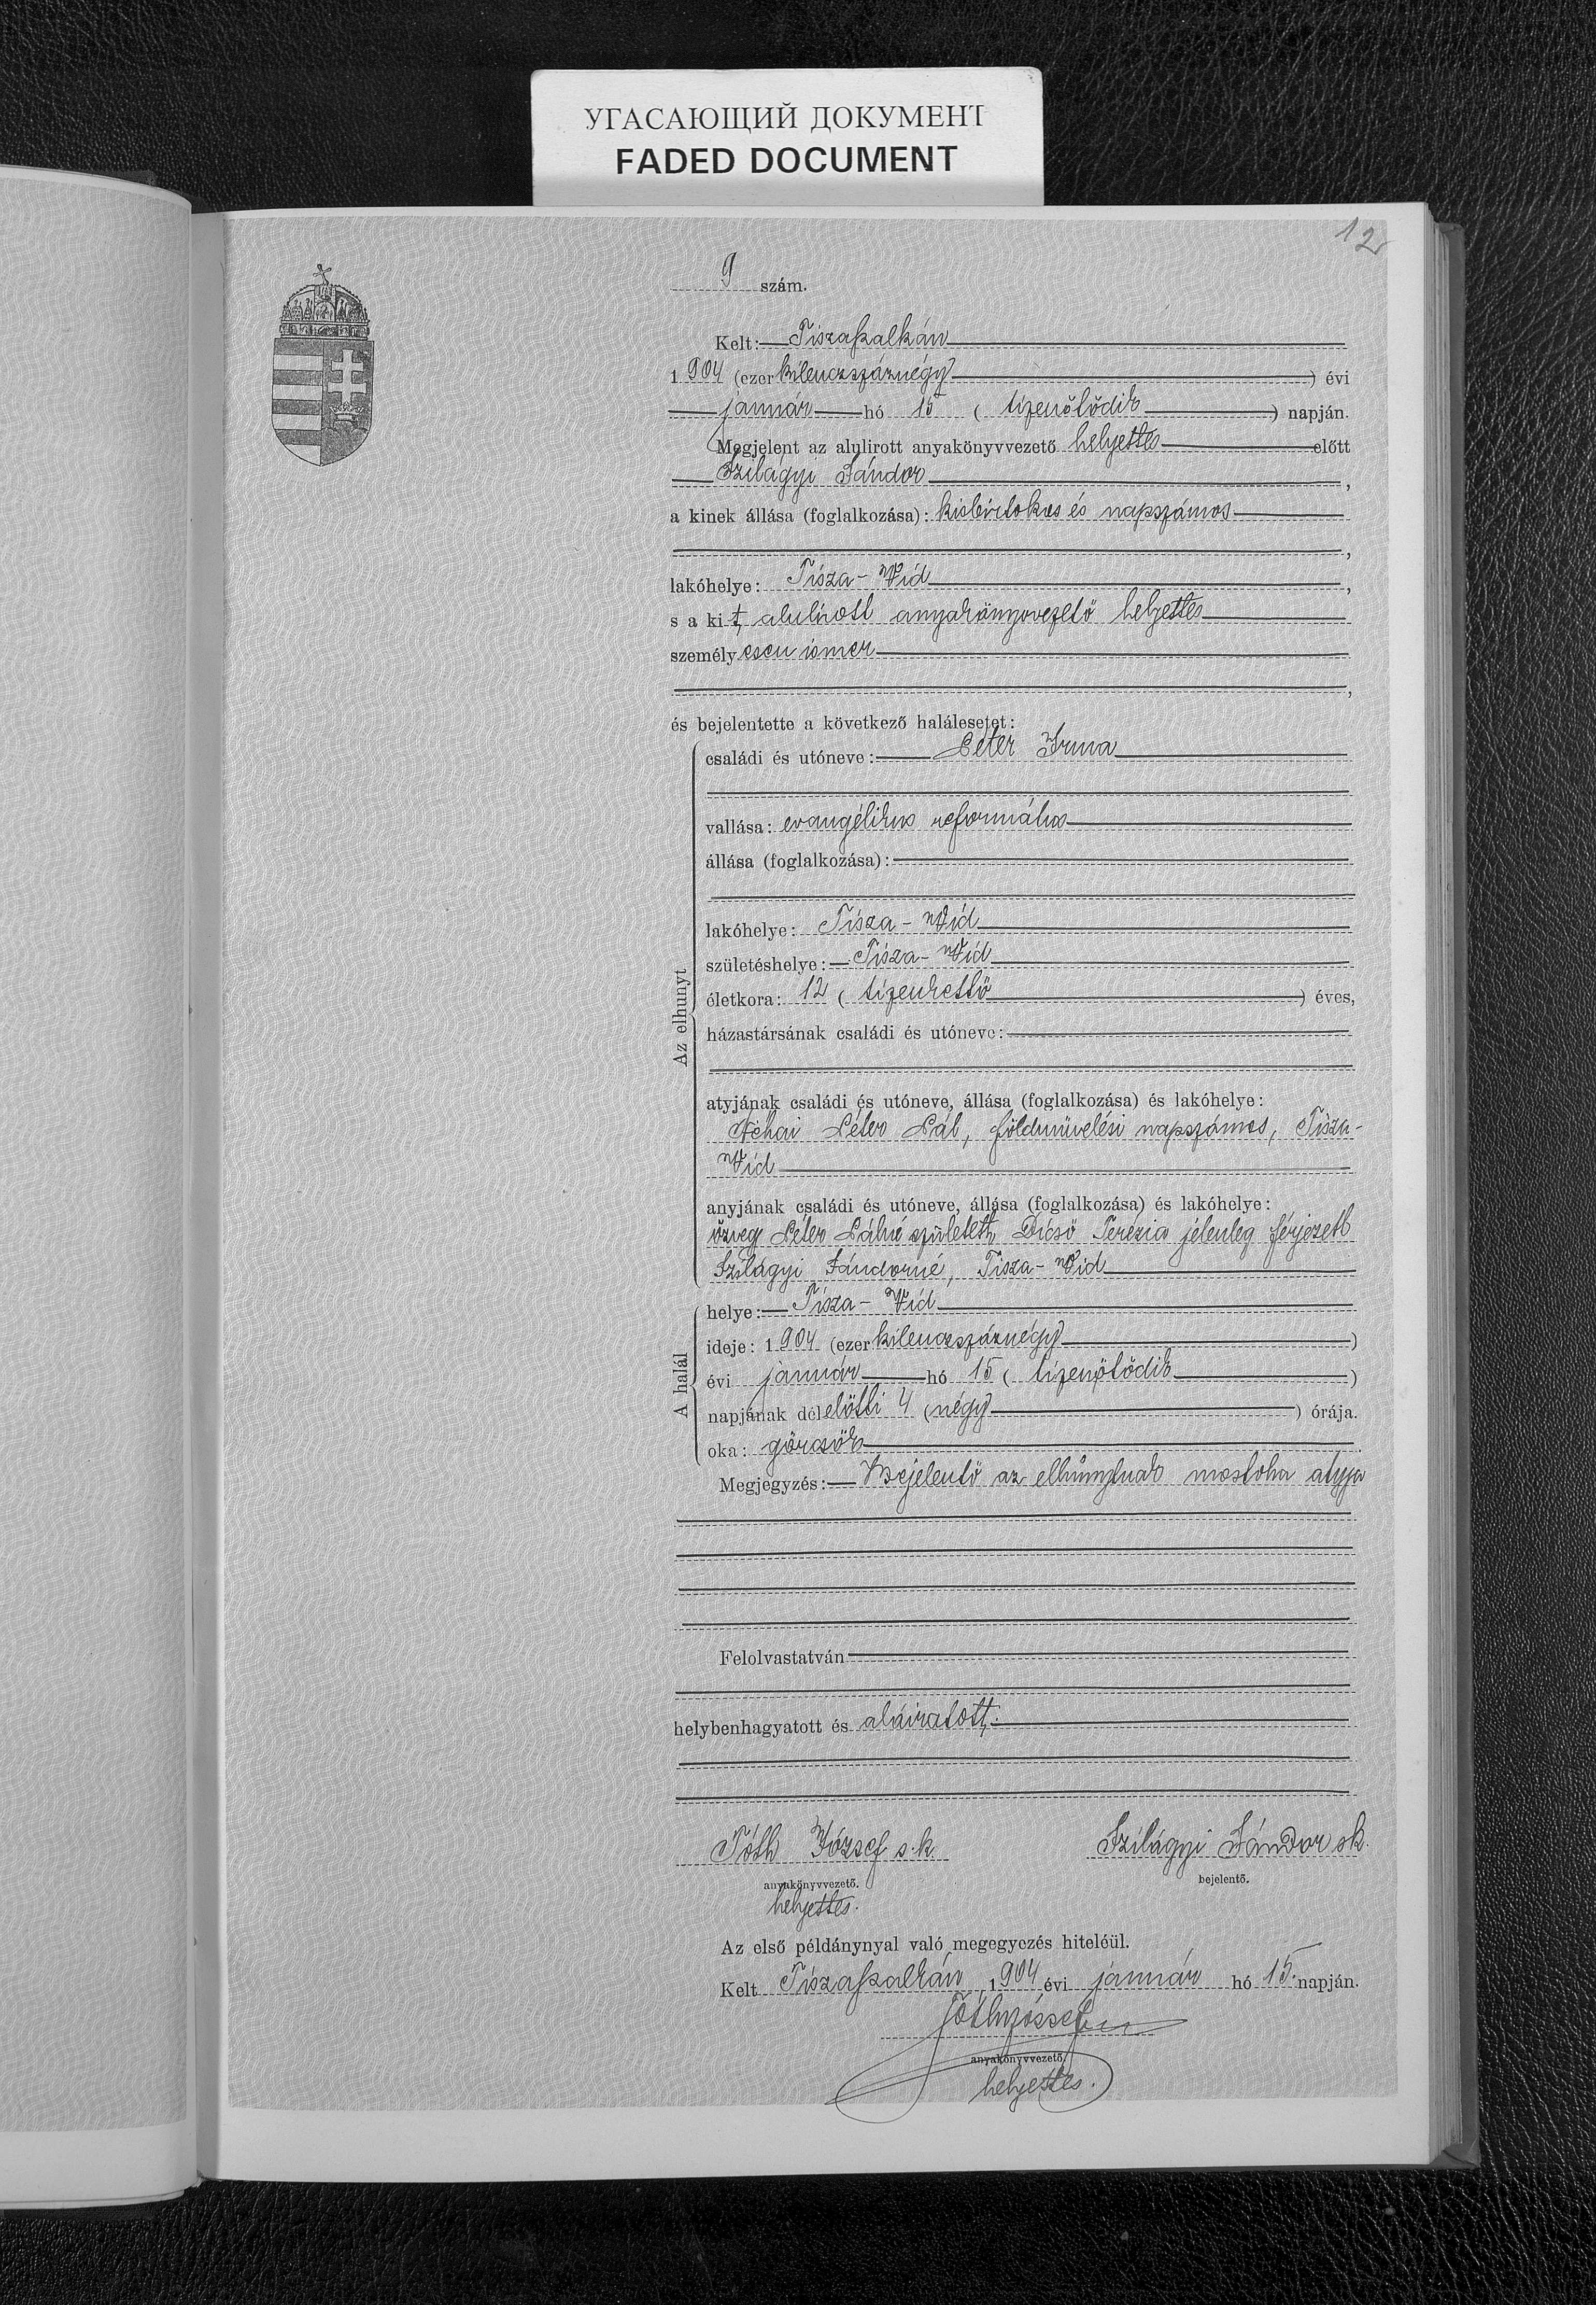 УГАСАЮЩИЙ ДОКУМЕНТ
FADED DOCUMENT
12
9 szám.
Kelt: Tiszaszalkán
1904 (ezer kilenczszáznégy) évi
január hó 15 (tizenötödik) napján.
Megjelent az alulirott anyakönyvvezető helyettes előtt
Szilágyi Sándor,
a kinek állása (foglalkozása): kisbirtokos és napszámos
,
lakóhelye: Tisza-Vid,
s a kit, alulirott anyakönyvvezető helyettes
személyesen ismer
,
és bejelentette a következő halálesetet:
Az elhunyt
családi és utóneve: Péter Irma
vallása: evangélikus református
állása (foglalkozása):
lakóhelye: Tisza-Vid
születéshelye: Tisza-Vid
életkora: 12 (tizenkettő) éves,
házastársának családi és utóneve:
atyjának családi és utóneve, állása (foglalkozása) és lakóhelye:
Néhai Péter Pál, földmüvelési napszámos, Tisza-
Vid
anyjának családi és utóneve, állása (foglalkozása) és lakóhelye:
özveg Péter Pálné született Dicső Terézia jelenleg férjezett
Szilágyi Sándorné, Tisza-Vid
A halál
helye: Tisza-Vid
ideje: 1904 (ezer kilenczszáznégy)
évi január hó 15 (tizenötödik)
napjának délelőtti 4 (négy) órája.
oka: görcsök
Megjegyzés: Bejelentő az elhúnytnak mostoha atyja
Felolvastatván
helybenhagyatott és aláiratott.
Tóth József s.k. Szilágyi Sándor sk.
anyakönyvvezető. bejelentő.
helyettes.
Az első példánynyal való megegyezés hiteléül.
Kelt Tiszaszalkán 1904 évi január hó 15. napján.
Tóth József
anyakönyvvezető
helyettes.